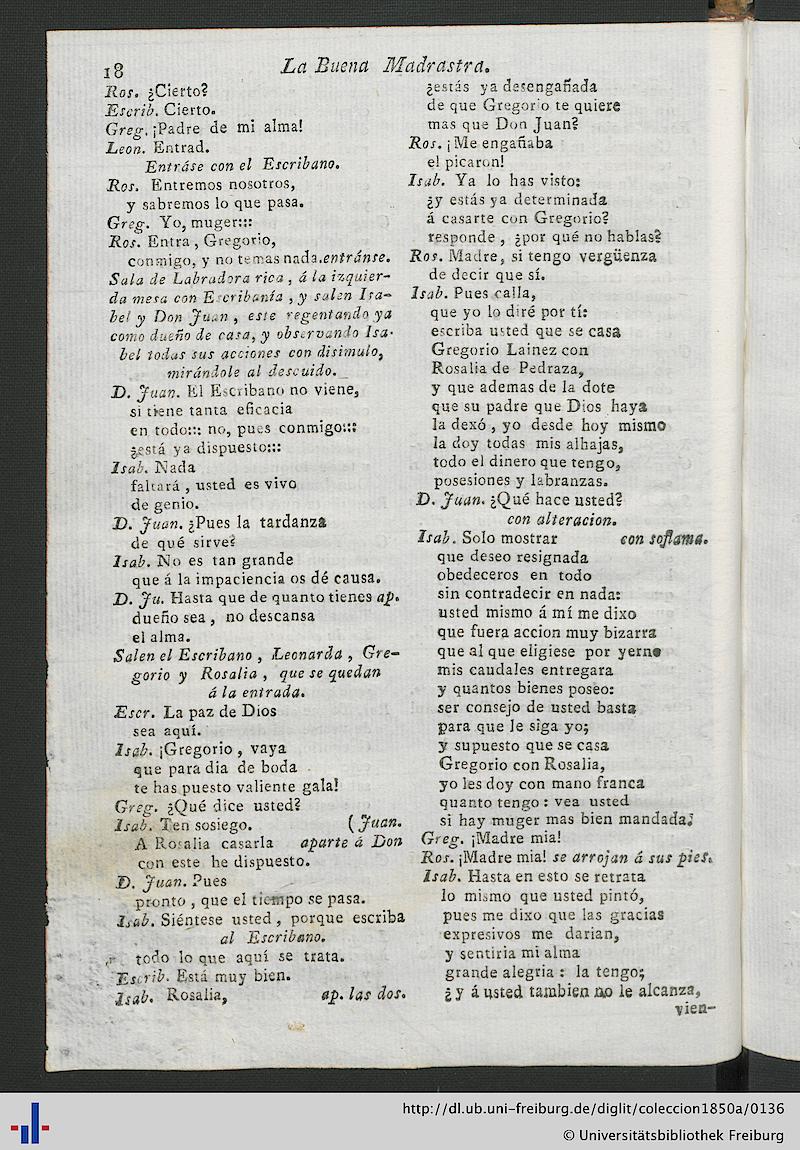 18
La Buena Madrastra.
Ros. ¿Cierto?
Escrib. Cierto.
Greg. ¡Padre de mi alma!
Leon. Entrad.
Entráse con el Escribano.
Ros. Entremos nosotros,
y sabremos lo que pasa.
Greg. Yo, muger:::
Ros. Entra, Gregorio,
conmigo, y no temas nada. entránse.
Sala de Labradora rica, á la izquier-
da mesa con Escribanía, y salen Isa-
bel y Don Juan, este regentando ya
como dueño de casa, y observando Isa-
bel todas sus acciones con disimulo,
mirándole al descuido.
D. Juan. El Escribano no viene,
si tiene tanta eficacia
en todo::: no, pues conmigo:::
¿está ya dispuesto:::
Isab. Nada
faltará, usted es vivo
de genio.
D. Juan. ¿Pues la tardanza
de qué sirve?
Isab. No es tan grande
que á la impaciencia os dé causa.
D. Ju. Hasta que de quanto tienes ap.
dueño sea, no descansa
el alma.
Salen el Escribano, Leonarda, Gre-
gorio y Rosalia, que se quedan
á la entrada.
Escr. La paz de Dios
sea aquí.
Isab. ¡Gregorio, vaya
que para dia de boda
te has puesto valiente gala!
Greg. ¿Qué dice usted?
Isab. Ten sosiego. (Juan.
A Rosalia casarla aparte á Don
con este he dispuesto.
D. Juan. Pues
pronto, que el tiempo se pasa.
Isab. Siéntese usted, porque escriba
al Escribano.
todo lo que aquí se trata.
Escrib. Está muy bien.
Isab. Rosalia, ap. las dos.
¿estás ya desengañada
de que Gregorio te quiere
mas que Don Juan?
Ros. ¡Me engañaba
el picaron!
Isab. Ya lo has visto:
¿y estás ya determinada
á casarte con Gregorio?
responde, ¿por qué no hablas?
Ros. Madre, si tengo vergüenza
de decir que sí.
Isab. Pues calla,
que yo lo diré por tí:
escriba usted que se casa
Gregorio Lainez con
Rosalia de Pedraza,
y que ademas de la dote
que su padre que Dios haya
la dexó, yo desde hoy mismo
la doy todas mis alhajas,
todo el dinero que tengo,
posesiones y labranzas.
D. Juan. ¿Qué hace usted?
con alteracion.
Isab. Solo mostrar con soflama.
que deseo resignada
obedeceros en todo
sin contradecir en nada:
usted mismo á mí me dixo
que fuera accion muy bizarra
que al que eligiese por yerno
mis caudales entregara
y quantos bienes poseo:
ser consejo de usted basta
para que le siga yo;
y supuesto que se casa
Gregorio con Rosalia,
yo les doy con mano franca
quanto tengo: vea usted
si hay muger mas bien mandada.
Greg. ¡Madre mia!
Ros. ¡Madre mia! se arrojan á sus pies.
Isab. Hasta en esto se retrata
lo mismo que usted pintó,
pues me dixo que las gracias
expresivos me darian,
y sentiria mi alma
grande alegria: la tengo;
¿y á usted tambien no le alcanza,
vien-
http://dl.ub.uni-freiburg.de/diglit/coleccion1850a/0136
© Universitätsbibliothek Freiburg